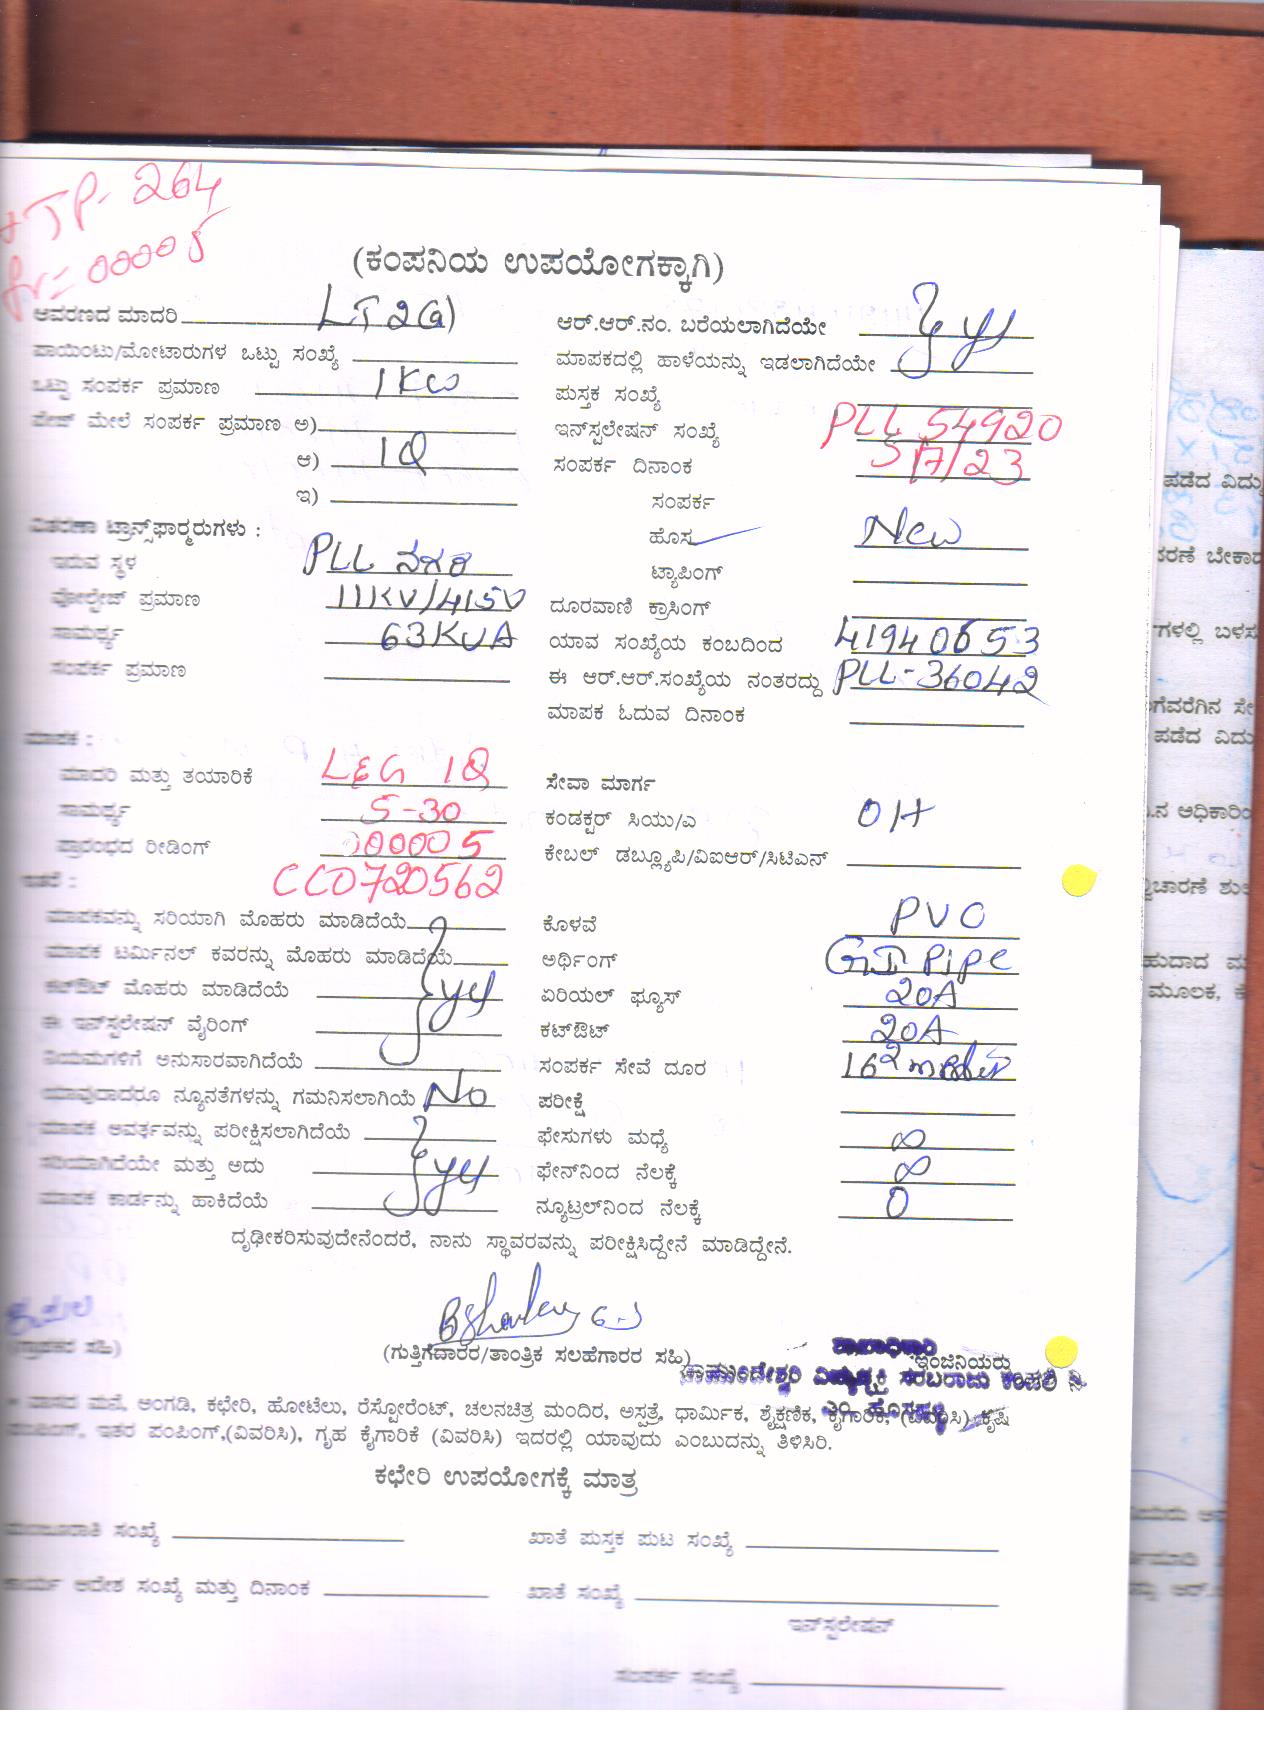 TP- 264
00005
(ಕಂಪನಿಯ ಉಪಯೋಗಕ್ಕಾಗಿ)
ಆವರಣದ ಮಾದರಿ LT2(a) ಆರ್.ಆರ್.ನಂ. ಬರೆಯಲಾಗಿದೆಯೇ
ಪಾಯಿಂಟು/ಮೋಟಾರುಗಳ ಒಟ್ಟು ಸಂಖ್ಯೆ ಮಾಪಕದಲ್ಲಿ ಹಾಳೆಯನ್ನು ಇಡಲಾಗಿದೆಯೇ yes
ಒಟ್ಟು ಸಂಪರ್ಕ ಪ್ರಮಾಣ 1KW ಪುಸ್ತಕ ಸಂಖ್ಯೆ
ಪೇಜ್ ಮೇಲೆ ಸಂಪರ್ಕ ಪ್ರಮಾಣ ಅ) ಇನ್‌ಸ್ಟಲೇಷನ್ ಸಂಖ್ಯೆ PLL 54920
ಆ) 1Q ಸಂಪರ್ಕ ದಿನಾಂಕ 5/7/23
ಇ) ಸಂಪರ್ಕ
ವಿತರಣಾ ಟ್ರಾನ್ಸ್‌ಫಾರ್ಮರುಗಳು : ಹೊಸ New
ಇರುವ ಸ್ಥಳ PLL ನಗರ ಟ್ಯಾಪಿಂಗ್
ವೋಲ್ಟೇಜ್ ಪ್ರಮಾಣ 11KV/415V ದೂರವಾಣಿ ಕ್ರಾಸಿಂಗ್
ಸಾಮರ್ಥ್ಯ 63KVA ಯಾವ ಸಂಖ್ಯೆಯ ಕಂಬದಿಂದ 41940653
ಸಂಪರ್ಕ ಪ್ರಮಾಣ ಈ ಆರ್.ಆರ್.ಸಂಖ್ಯೆಯ ನಂತರದ್ದು PLL-36042
ಮಾಪಕ ಓದುವ ದಿನಾಂಕ
ಮಾಪಕ :
ಮಾದರಿ ಮತ್ತು ತಯಾರಿಕೆ L&G 1Q ಸೇವಾ ಮಾರ್ಗ
ಸಾಮರ್ಥ್ಯ 5-30 ಕಂಡಕ್ಟರ್ ಸಿಯು/ಎ OH
ಪ್ರಾರಂಭದ ರೀಡಿಂಗ್ 00005 ಕೇಬಲ್ ಡಬ್ಲ್ಯೂಪಿ/ವಿಐಆರ್/ಸಿಟಿಎನ್
ಇತರೆ : CC0720562
ಮಾಪಕವನ್ನು ಸರಿಯಾಗಿ ಮೊಹರು ಮಾಡಿದೆಯೆ ಕೊಳವೆ PVC
ಮಾಪಕ ಟರ್ಮಿನಲ್ ಕವರನ್ನು ಮೊಹರು ಮಾಡಿದೆಯೆ ಅರ್ಥಿಂಗ್ GI Pipe
ಕಟ್‌ಔಟ್ ಮೊಹರು ಮಾಡಿದೆಯೆ yes ಏರಿಯಲ್ ಫ್ಯೂಸ್ 20A
ಈ ಇನ್‌ಸ್ಟಲೇಷನ್ ವೈರಿಂಗ್ ಕಟ್‌ಔಟ್ 20A
ನಿಯಮಗಳಿಗೆ ಅನುಸಾರವಾಗಿದೆಯೆ ಸಂಪರ್ಕ ಸೇವೆ ದೂರ
ಯಾವುದಾದರೂ ನ್ಯೂನತೆಗಳನ್ನು ಗಮನಿಸಲಾಗಿಯೆ No ಪರೀಕ್ಷೆ
ಮಾಪಕ ಆವರ್ತವನ್ನು ಪರೀಕ್ಷಿಸಲಾಗಿದೆಯೆ ಫೇಸುಗಳು ಮಧ್ಯೆ ∞
ಸರಿಯಾಗಿದೆಯೇ ಮತ್ತು ಅದು yes ಫೇನ್‌ನಿಂದ ನೆಲಕ್ಕೆ ∞
ಮಾಪಕ ಕಾರ್ಡನ್ನು ಹಾಕಿದೆಯೆ ನ್ಯೂಟ್ರಲ್‌ನಿಂದ ನೆಲಕ್ಕೆ 0
ದೃಢೀಕರಿಸುವುದೇನೆಂದರೆ, ನಾನು ಸ್ಥಾವರವನ್ನು ಪರೀಕ್ಷಿಸಿದ್ದೇನೆ ಮಾಡಿದ್ದೇನೆ.
(ಗ್ರಾಹಕರ ಸಹಿ) (ಗುತ್ತಿಗೆದಾರರ/ತಾಂತ್ರಿಕ ಸಲಹೆಗಾರರ ಸಹಿ) ಇಂಜಿನಿಯರು
ಶಾಖಾಧಿಕಾರಿ
ಚಾಮುಂಡೇಶ್ವರಿ ವಿದ್ಯುಚ್ಛಕ್ತಿ ಸರಬರಾಜು ಕಂಪನಿ ನಿ.
ವಾಸದ ಮನೆ, ಅಂಗಡಿ, ಕಛೇರಿ, ಹೋಟೆಲು, ರೆಸ್ಟೋರೆಂಟ್, ಚಲನಚಿತ್ರ ಮಂದಿರ, ಅಸ್ಪತ್ರೆ, ಧಾರ್ಮಿಕ, ಶೈಕ್ಷಣಿಕ, ಕೈಗಾರಿಕೆ, (ವಿವರಿಸಿ) ಕೃಷಿ
ಪಂಪಿಂಗ್, ಇತರ ಪಂಪಿಂಗ್,(ವಿವರಿಸಿ), ಗೃಹ ಕೈಗಾರಿಕೆ (ವಿವರಿಸಿ) ಇದರಲ್ಲಿ ಯಾವುದು ಎಂಬುದನ್ನು ತಿಳಿಸಿರಿ.
ಕಛೇರಿ ಉಪಯೋಗಕ್ಕೆ ಮಾತ್ರ
ಮಂಜೂರಾತಿ ಸಂಖ್ಯೆ ಖಾತೆ ಪುಸ್ತಕ ಪುಟ ಸಂಖ್ಯೆ
ಕಾರ್ಯ ಆದೇಶ ಸಂಖ್ಯೆ ಮತ್ತು ದಿನಾಂಕ ಖಾತೆ ಸಂಖ್ಯೆ
ಇನ್‌ಸ್ಟಲೇಷನ್
ಸಂಪರ್ಕ ಸಂಖ್ಯೆ